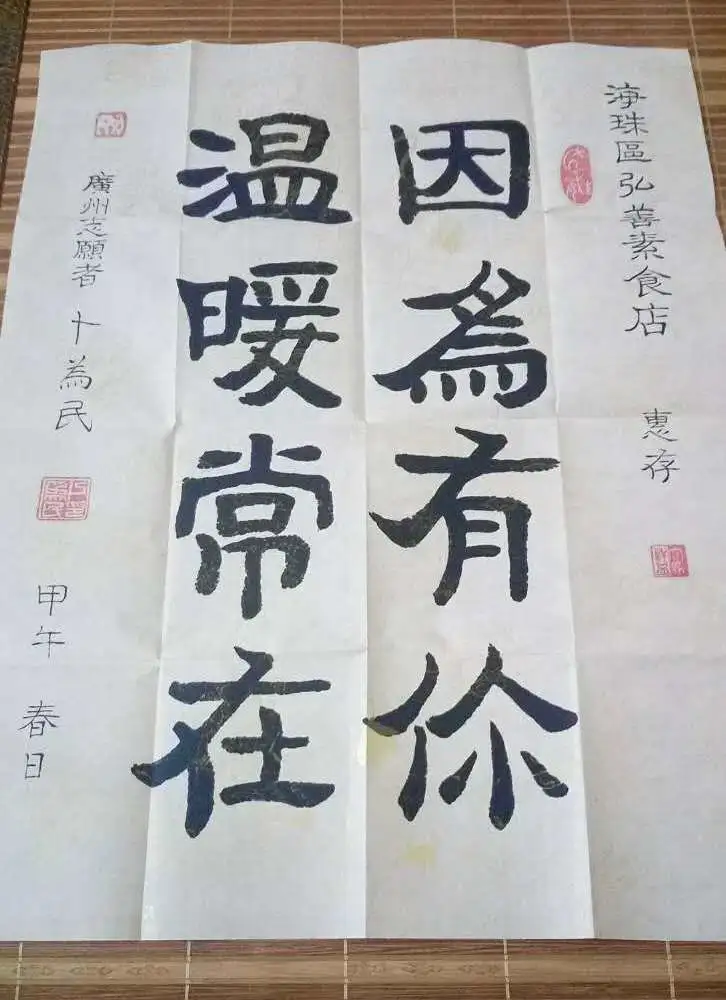 海珠區弘善素食店 惠存
因為有你
温暖常在
廣州志願者 卜為民
甲午 春日